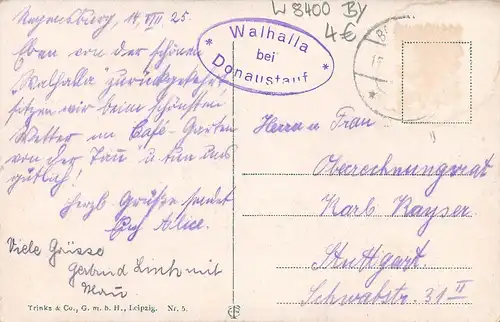 Regensburg, 14. VIII 25.
Eben von der schönen
"Walhalla" zurückgekehrt
sitzen wir beim schönsten
Wetter im Café-Garten
von der Tour u. tun uns
gütlich!
Herzl. Grüße sendet
Euch Alice.
Viele Grüsse
Link mit
Frau
Trinks & Co., G. m. b. H., Leipzig. Nr. 5.
Walhalla
bei
Donaustauf
W 8400 BY
4€
Herrn u. Frau
Oberrechnungsrat
Karl Kayser
Stuttgart.
Schwabstr. 31 II